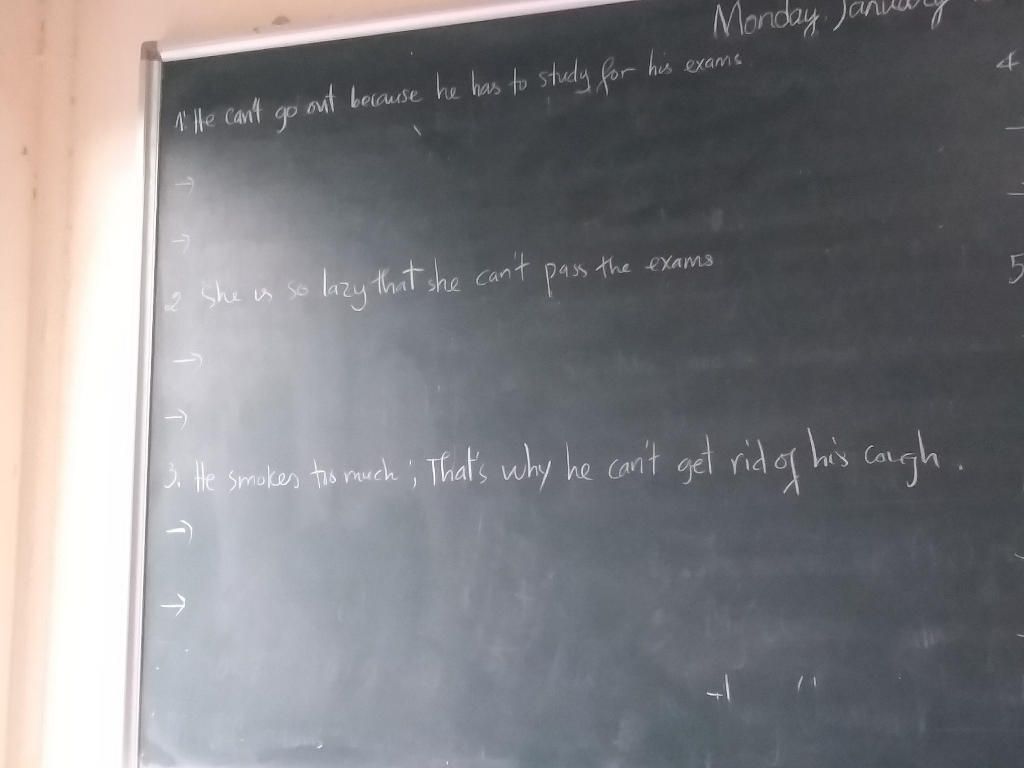 Monday, January
1. He can't go out because he has to study for his exams
→
→
2 She is so lazy that she can't pass the exams
→
→
3. He smokes too much ; That's why he can't get rid of his cough .
→
→
4
5